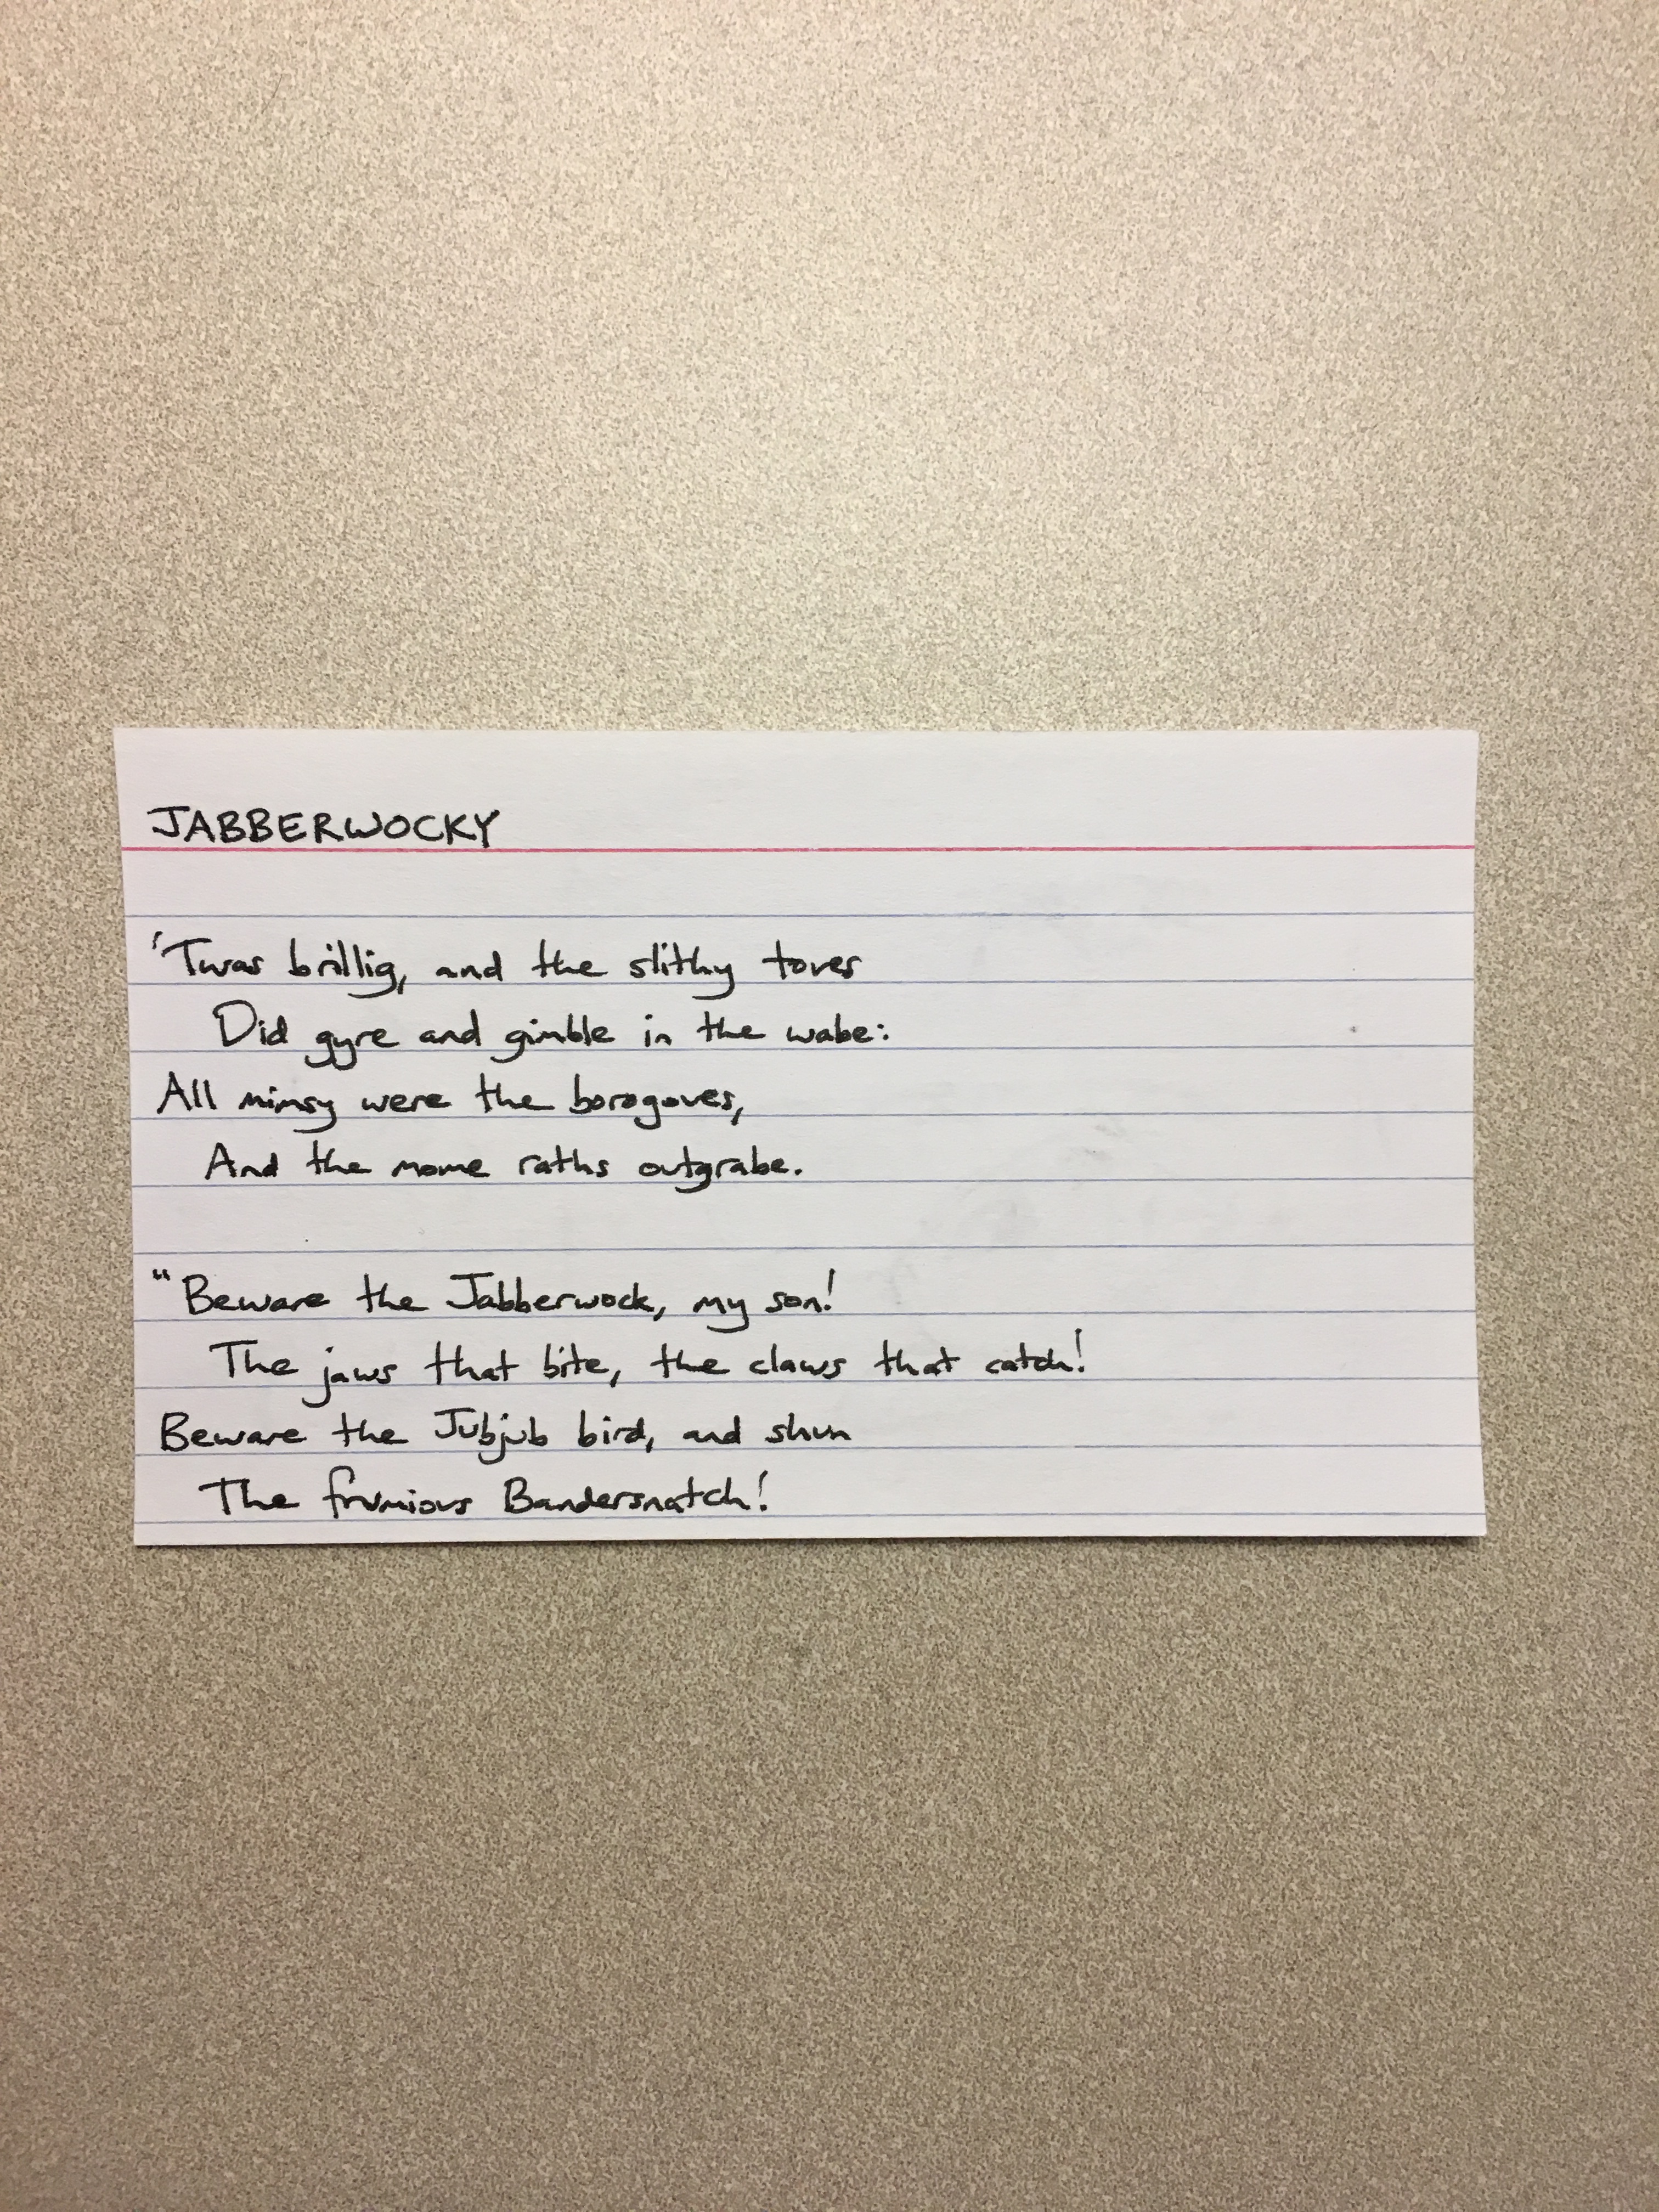 JABBERWOCKY
'Twas brillig, and the slithy toves
Did gyre and gimble in the wabe:
All mimsy were the borogoves,
And the mome raths outgrabe.
"Beware the Jabberwock, my son!
The jaws that bite, the claws that catch!
Beware the Jubjub bird, and shun
The frumious Bandersnatch!